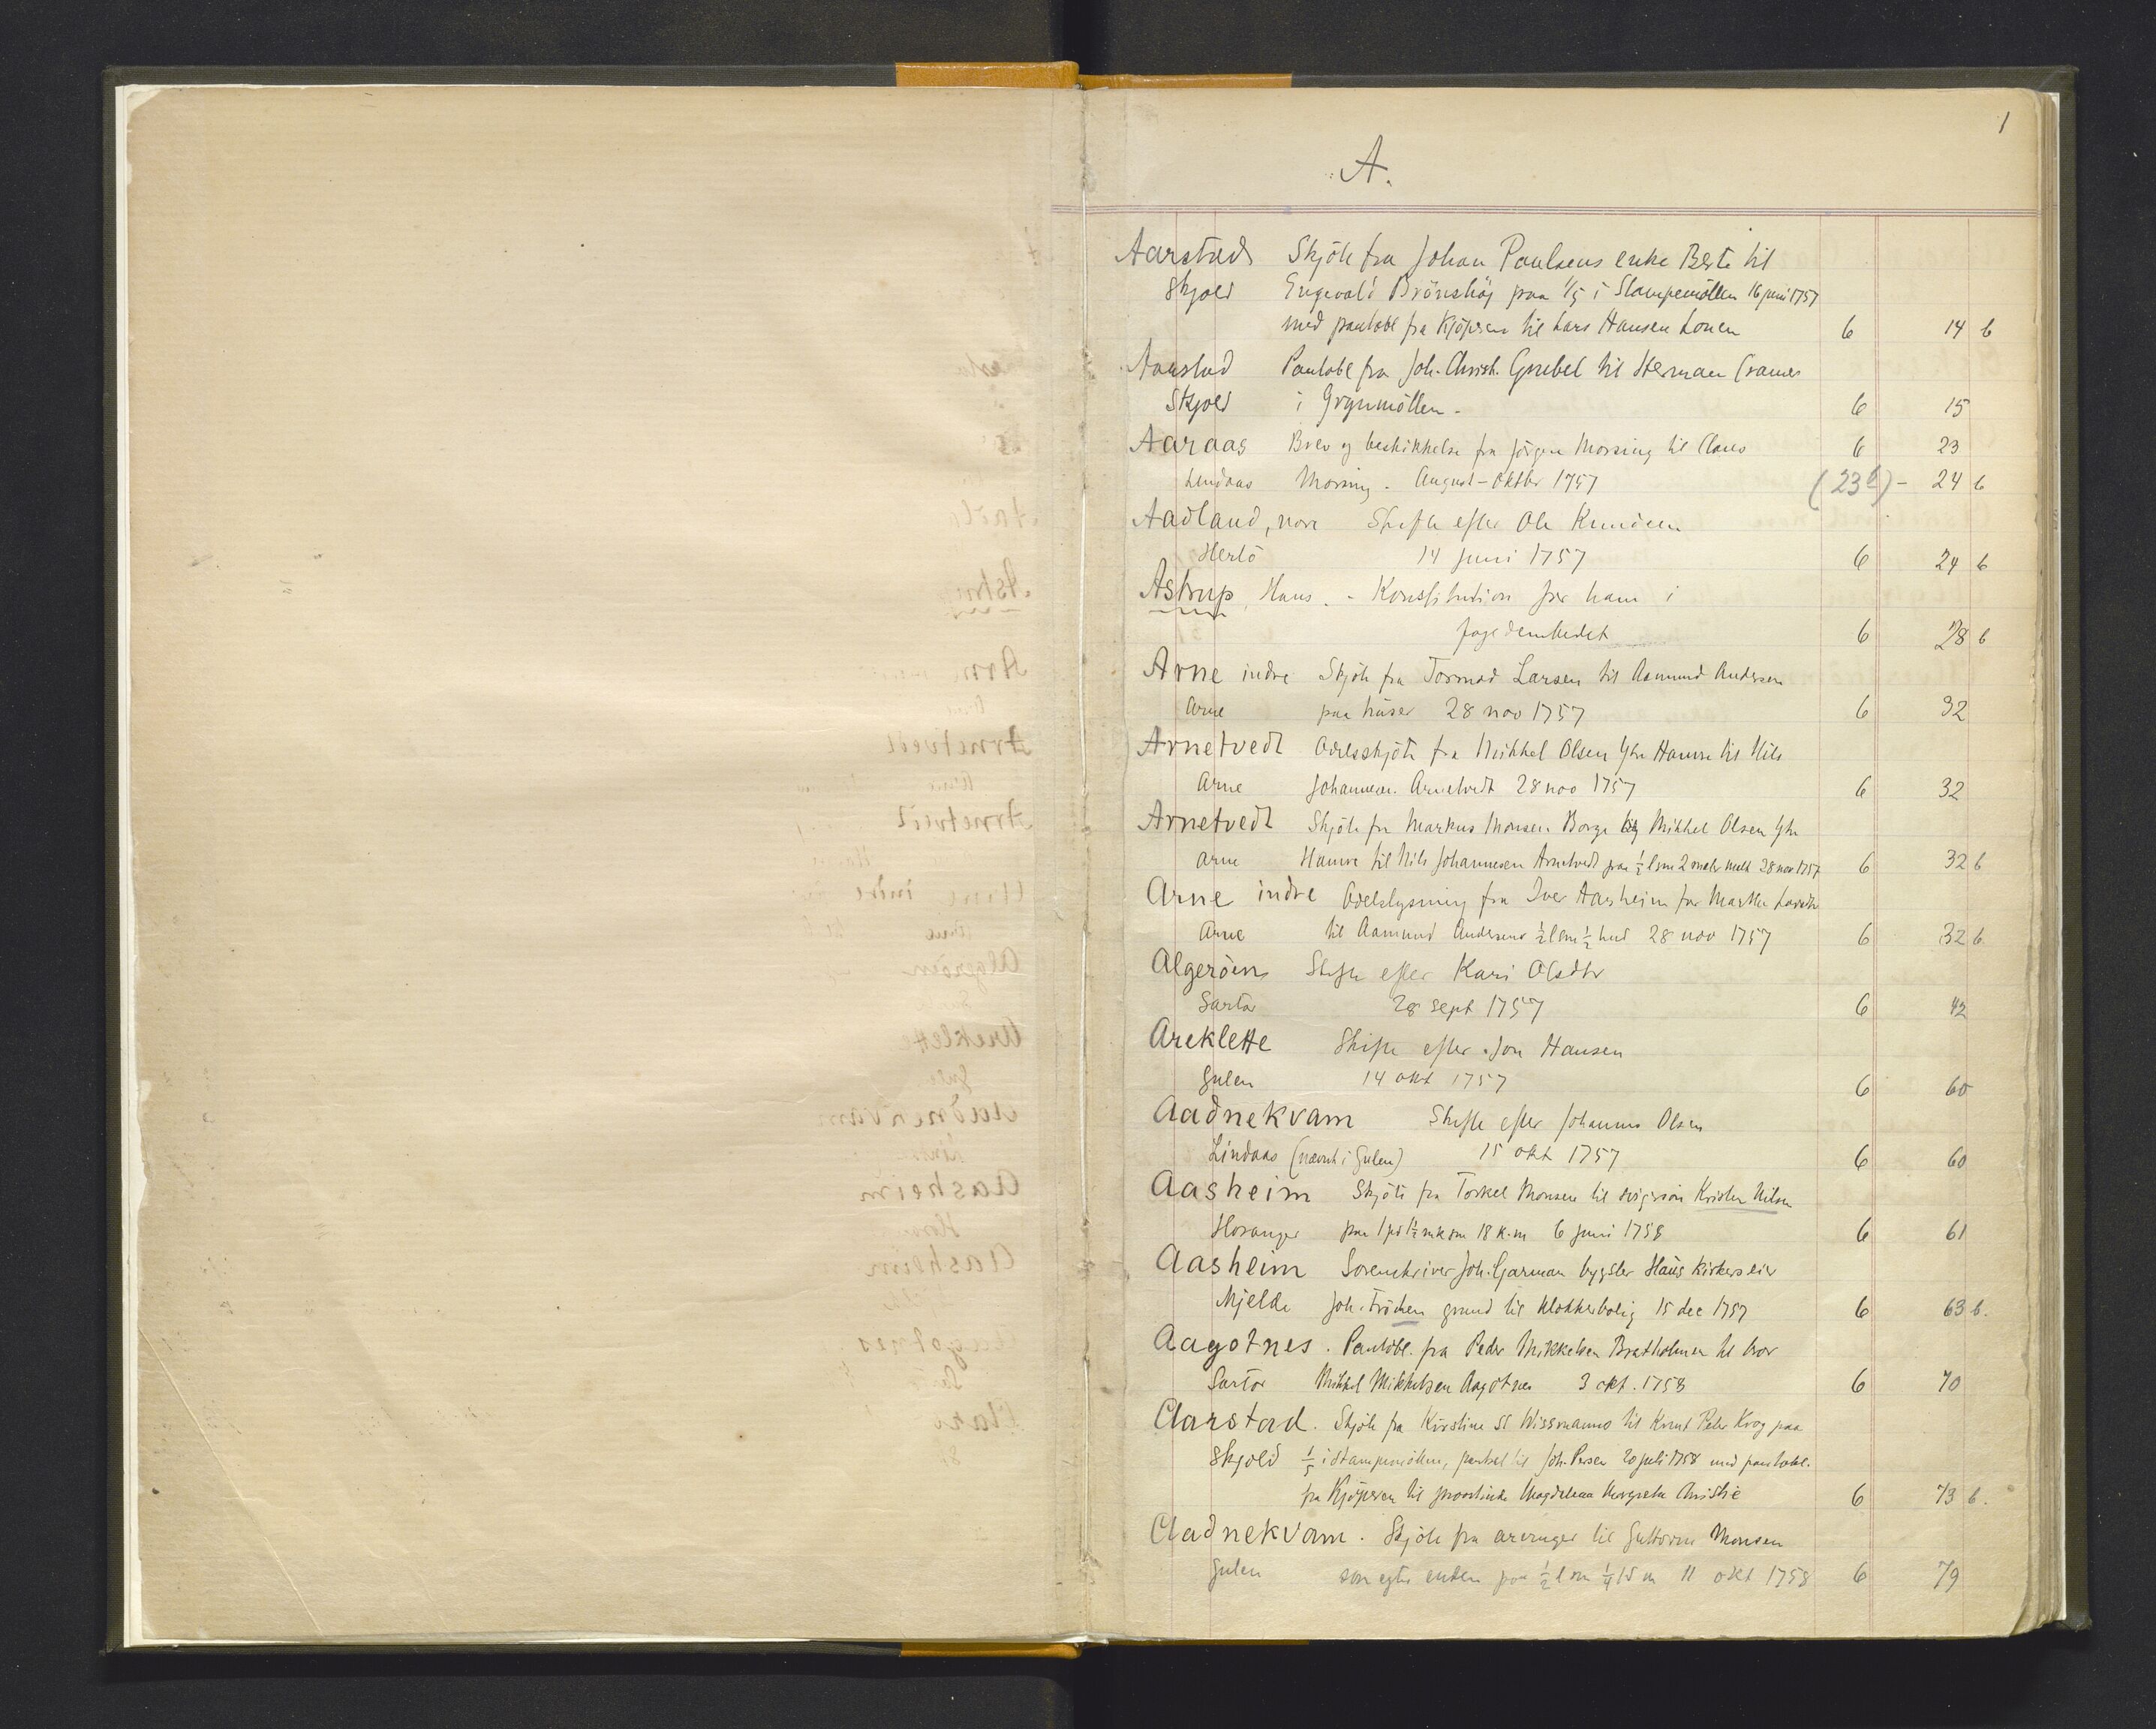 1
A.
Aarstad Skjöte fra Johan Paulsens enke Berte til
Skjold Engevald Brönshöj paa 1/5 i Stampemöllen 16 juni 1757
med pantobl fra Kjöperen til Lars Hansen Lonen 6 14 b
Aarstad Pantobl fra Joh. Christ. Gnebel til Herman Cramer
Skjold i Grynmöllen. 6 15
Aaraas Brev og beskikkelse fra Jörgen Morsing til Claus 6 23
Lindaas Morsing. August-Oktbr 1757 (23b) - 24 b
Aadland, nore Skifte efter Ole Knudsen
Herlö 14 juni 1757 6 24 b
Astrup, Hans. - Konstitution for ham i
fogedembedet 6 28 b
Arne indre Skjöte fra Tormod Larsen til Aamund Andersen
Arne paa huser 28 nov 1757 6 32
Arnetvedt Odelsskjöte fra Mikkel Olsen Ytre Hamre til Nils
Arne Johannesen Arnetvedt 28 nov 1757 6 32
Arnetvedt Skjöte fra Markus Monsen Borge og Mikkel Olsen Ytre
Arne Hamre til Nils Johannesen Arnetvedt paa ½ l sm 2 meler malt 28 nov 1757 6 32 b
Arne indre Odelslysning fra Iver Aasheim for Marthe Larsdtr
Arne til Aamund Andersens ½ l sm ½ hud 28 nov 1757 6 32 b
Algeröen Skifte efter Kari Olsdtr
Sartor 28 sept 1757 6 42
Areklette Skifte efter Jon Hansen
Gulen 14 okt 1757 6 60
Aadnekvam Skifte efter Johannes Olsen
Lindaas (nævnt i Gulen) 15 okt 1757 6 60
Aasheim Skjöte fra Torkel Monsen til svigersön Kristen Nilsen
Hosanger paa 1 pd 1½ mk sm 18 k.m 6 juni 1758 6 61
Aasheim Sorenskriver Joh. Garman bygsler Haus kirkes eier
Mjelde Joh. Fröchen grund til klokkerbolig 15 dec 1757 6 63 b.
Aagotnes. Pantobl. fra Peder Mikkelsen Bratholmen til bror
Sartor Mikkel Mikkelsen Aagotnes 3 okt. 1758 6 70
Aarstad. Skjöte fra Kirstine Sl Wissmanns til Knut Peter Krog paa
Skjold 1/5 i Stampemöllen, pantsat til Joh. Persen 20 juli 1758 med pantobl.
fra Kjöperen til provstinde Magdelena Margrete Christie 6 73 b.
Aadnekvam. Skjöte fra arvinger til Guttorm Monsen
Gulen som egter enken paa ½ l sm ¼ 15 m 11 okt 1758 6 79